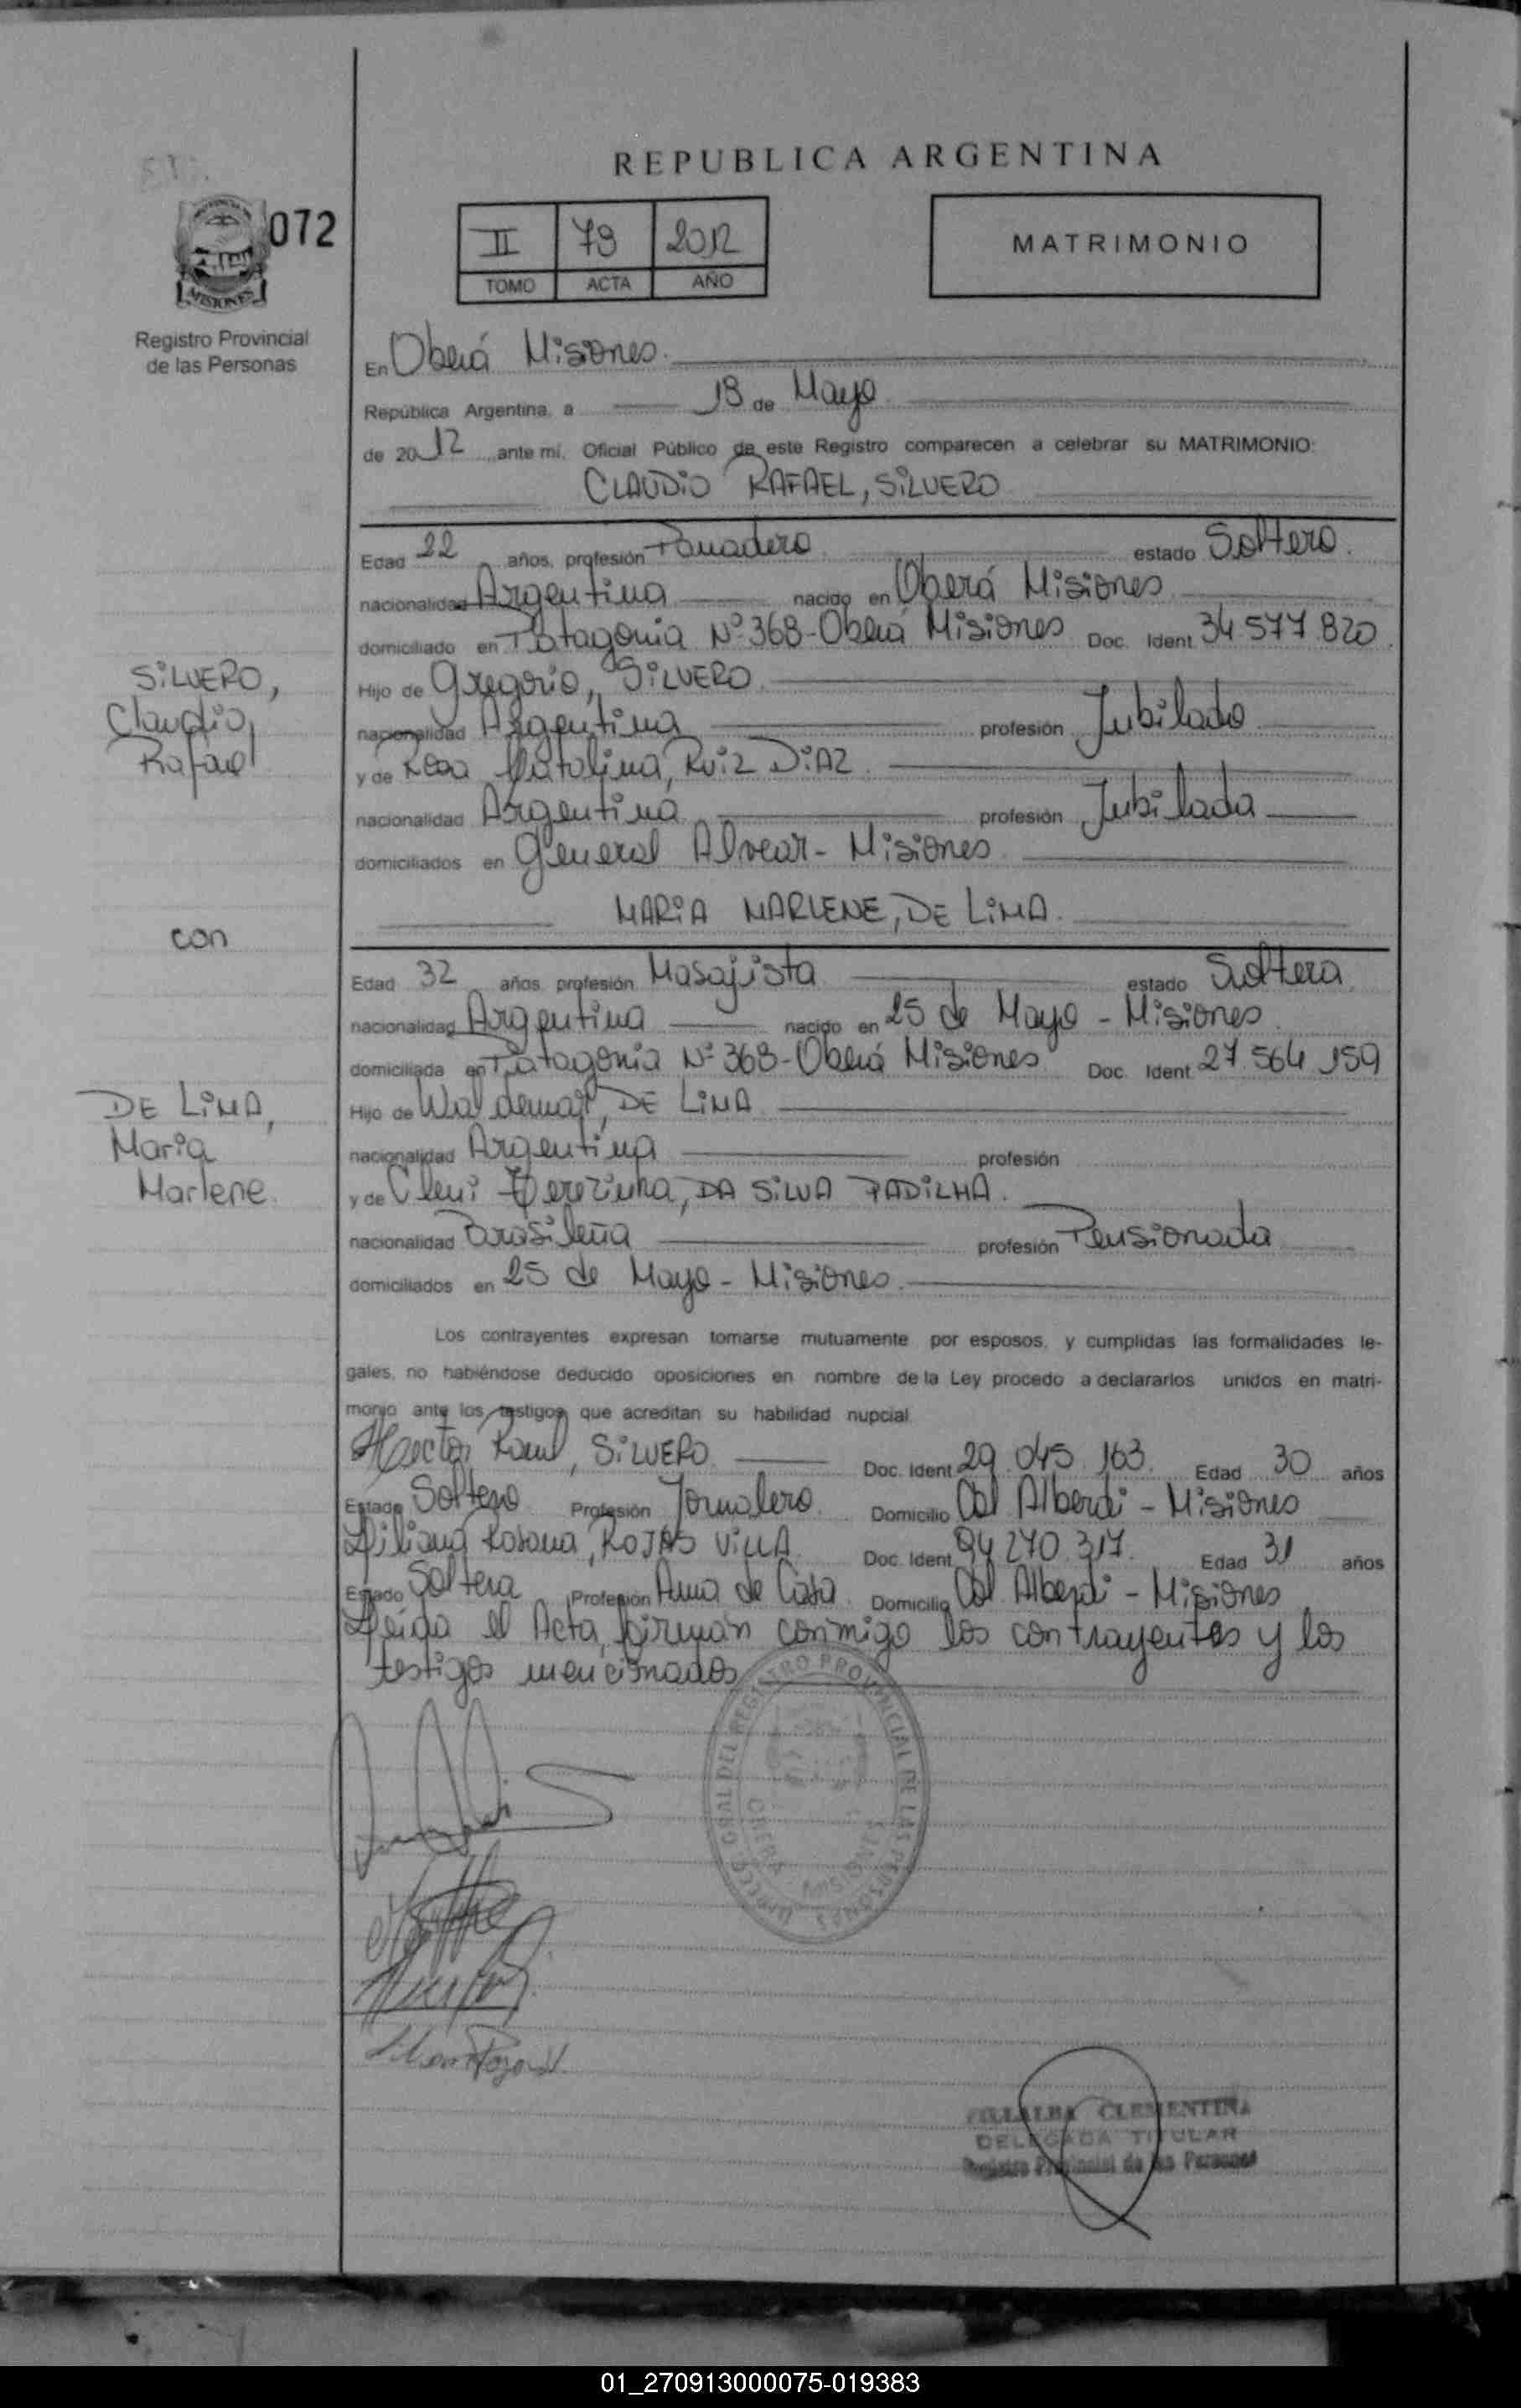 REPUBLICA ARGENTINA
072
II 79 2012
TOMO ACTA AÑO
MATRIMONIO
MISIONES
Registro Provincial
de las Personas
En Oberá Misiones.
República Argentina, a 18 de Mayo
de 2012 ante mí, Oficial Público de este Registro comparecen a celebrar su MATRIMONIO:
CLAUDIO RAFAEL, SILVERO
Edad 22 años, profesión Panadero estado Soltero.
nacionalidad Argentina nacido en Oberá Misiones
domiciliado en Patagonia Nº 368-Oberá Misiones Doc. Ident. 34.577.820
SILVERO,
Claudio,
Rafael
Hijo de Gregorio, SILVERO
nacionalidad Argentina profesión Jubilado
y de Rosa Catalina, RUIZ DIAZ
nacionalidad Argentina profesión Jubilada
domiciliados en General Alvear - Misiones
MARIA MARLENE, DE LIMA
con
Edad 32 años profesión Masajista estado Soltera
nacionalidad Argentina nacido en 25 de Mayo - Misiones
domiciliada en Patagonia Nº 368-Oberá Misiones Doc. Ident. 27.564.159
DE LIMA,
Maria
Marlene.
Hijo de Waldemar, DE LIMA
nacionalidad Argentina profesión
y de Cleni Terezinha, DA SILVA PADILHA.
nacionalidad Brasileña profesión Pensionada
domiciliados en 25 de Mayo - Misiones.
Los contrayentes expresan tomarse mutuamente por esposos, y cumplidas las formalidades le-
gales, no habiéndose deducido oposiciones en nombre de la Ley procedo a declararlos unidos en matri-
monio ante los testigos que acreditan su habilidad nupcial
Hector Raul, SILVERO Doc. Ident. 29.045.163. Edad 30 años
Estado Soltero Profesión Jornalero. Domicilio Col. Alberdi - Misiones
Liliana Rosana, ROJAS VILLA Doc. Ident. 94.270.317. Edad 31 años
Estado Soltera Profesión Ama de Casa Domicilio Col. Alberdi - Misiones
Leida el Acta, firman conmigo los contrayentes y los
testigos mencionados
REGISTRO PROVINCIAL DE LAS PERSONAS
MISIONES
VILLALBA CLEMENTINA
DELEGADA TITULAR
Registro Provincial de las Personas
01_270913000075-019383